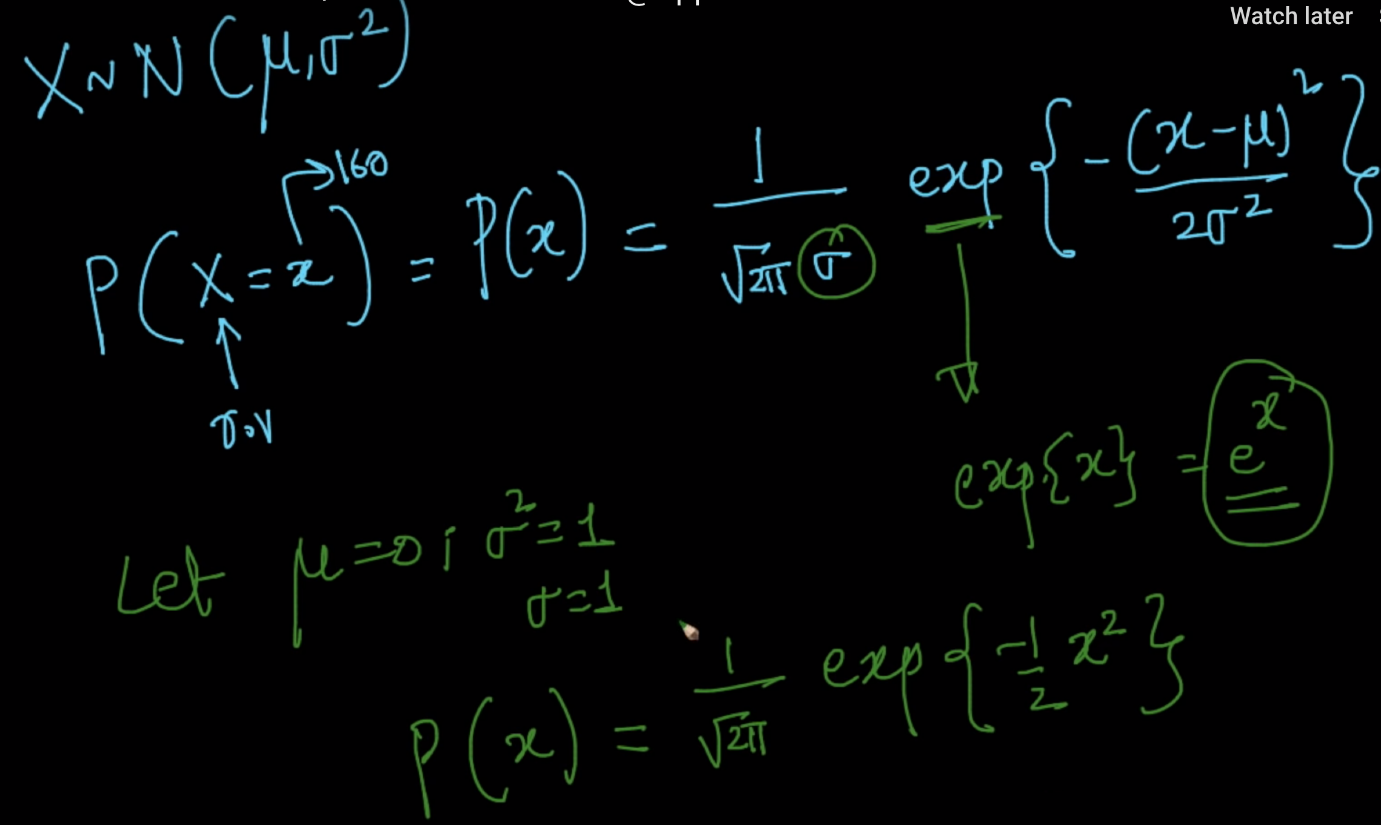 Watch later
X ~ N(μ, σ²)
→160
P(X = x) = P(x) = 1 / √2π σ exp{-(x-μ)² / 2σ²}
r.v
exp{x} = e^x
Let μ=0; σ²=1
σ=1
P(x) = 1 / √2π exp{-1/2 x²}